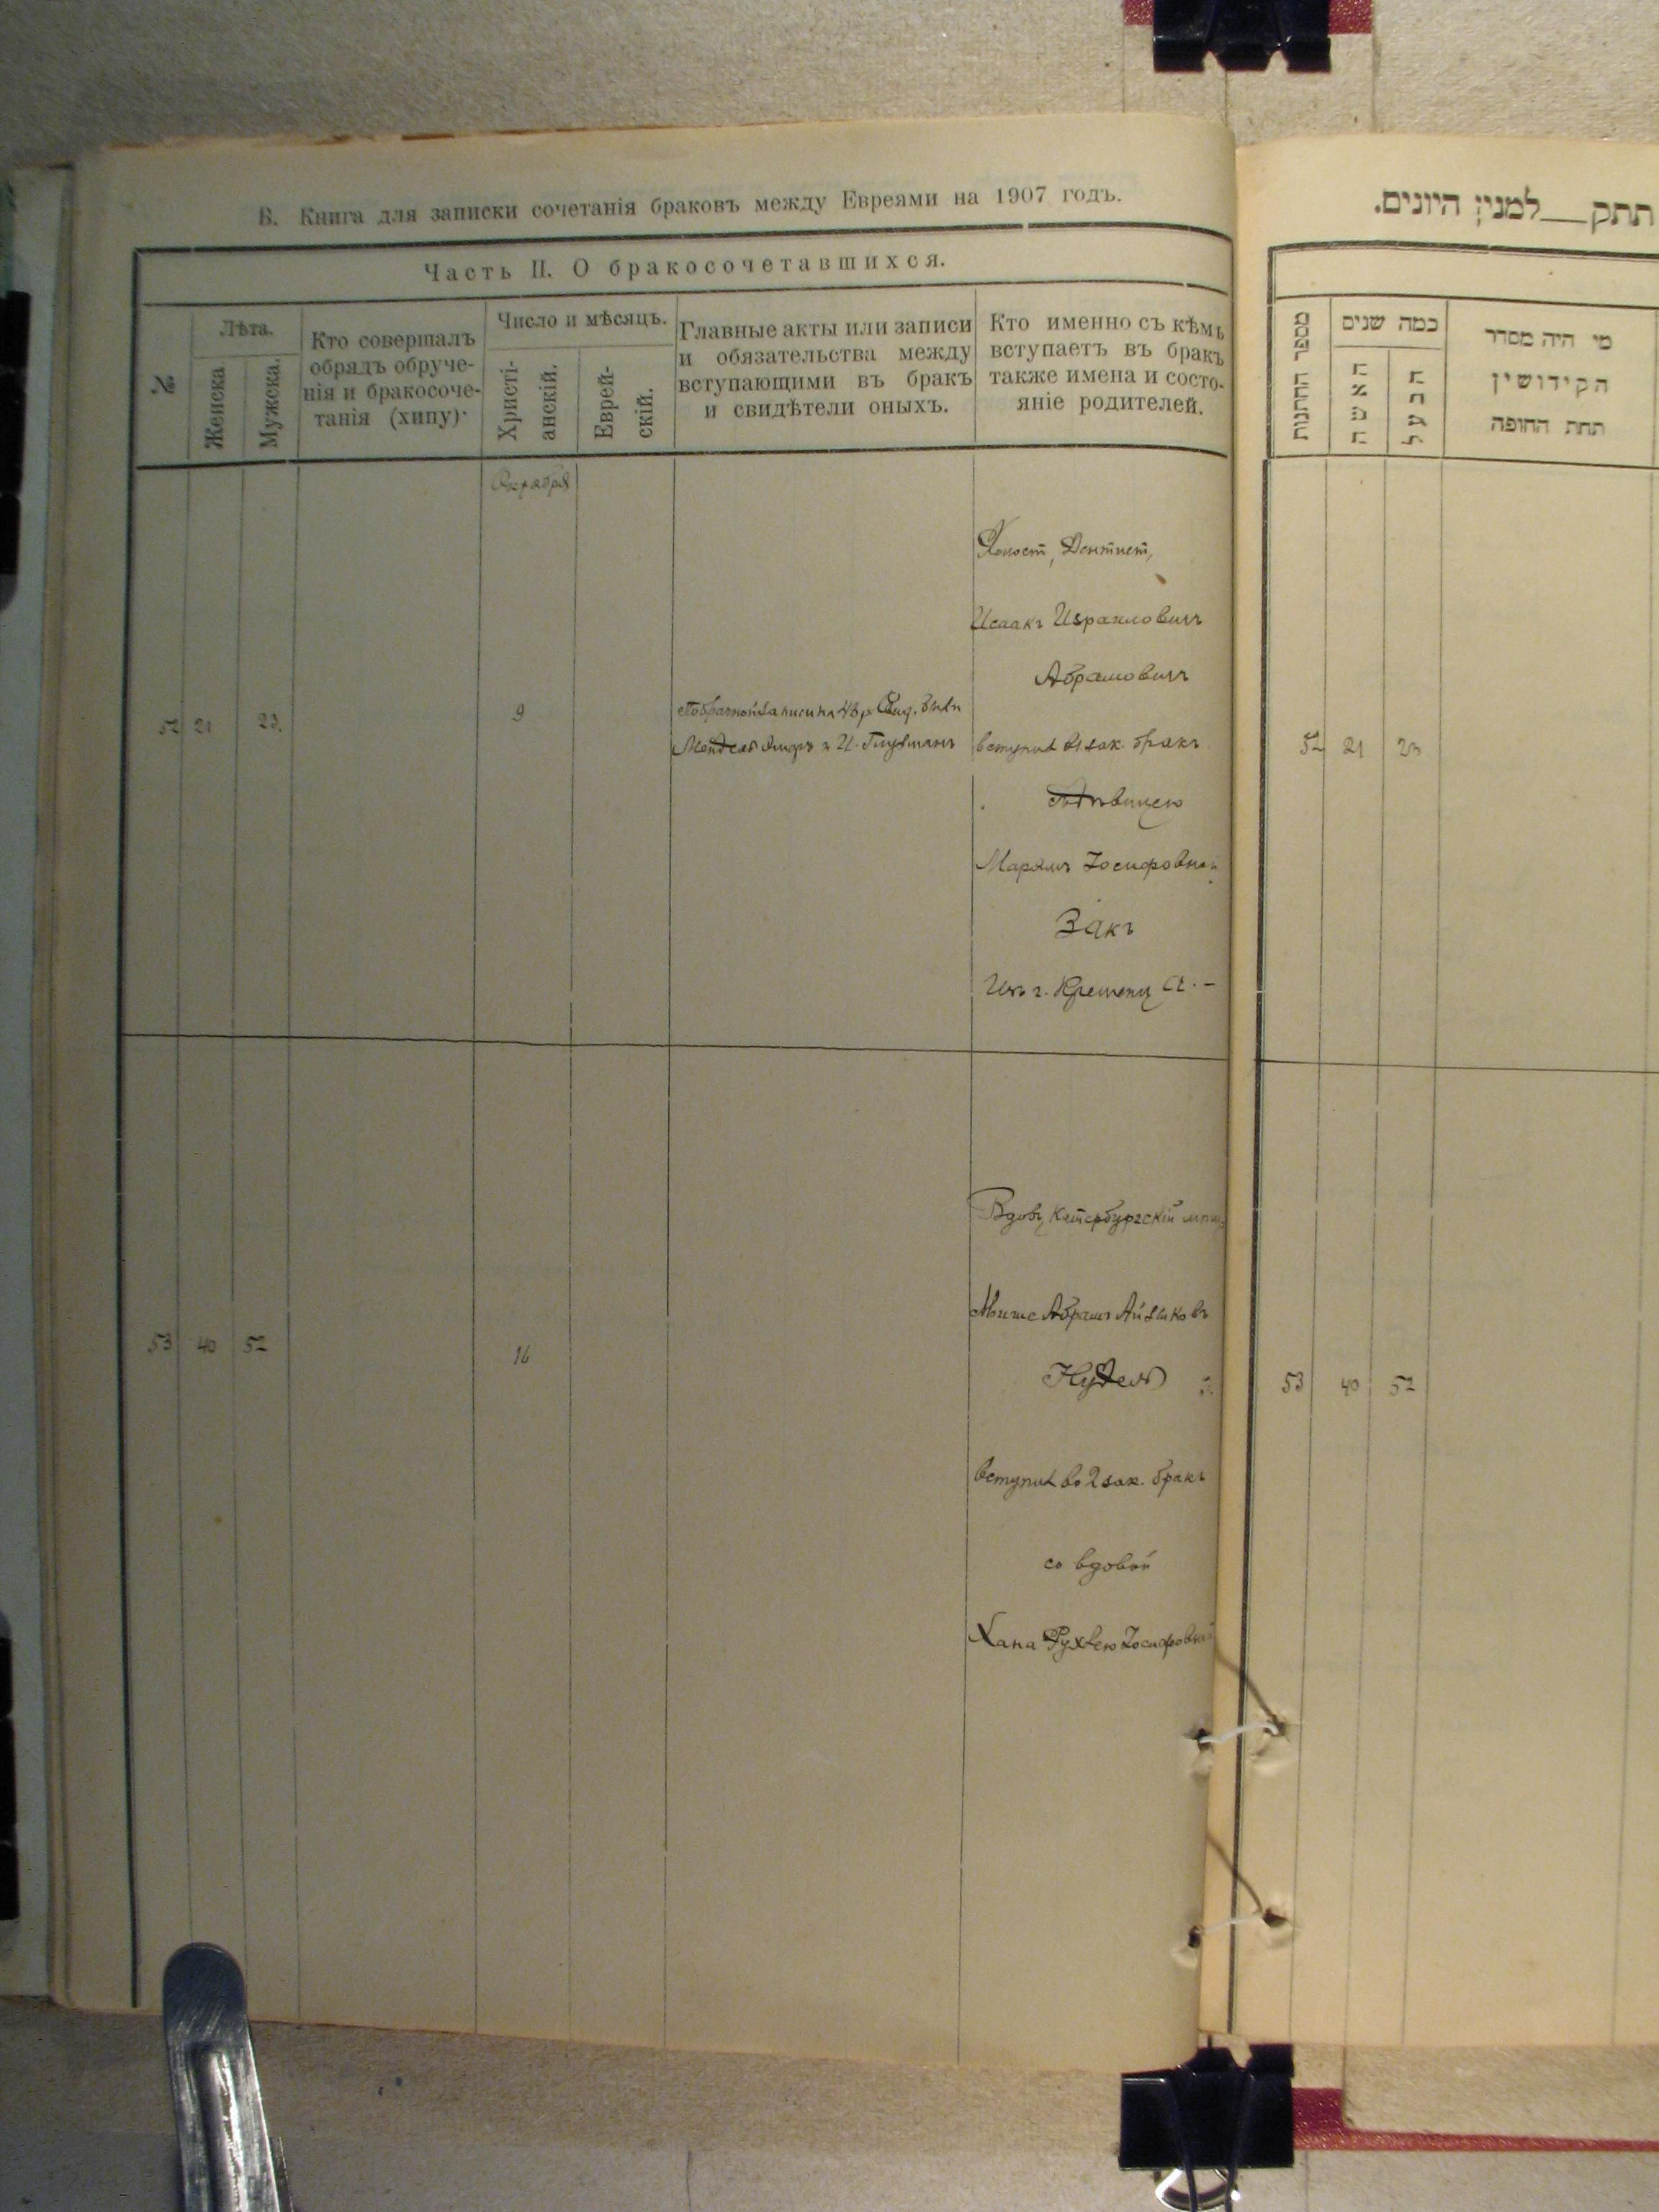 В. Книга для записки сочетанія браковъ между Евреями на 1907 годъ.
Часть II. О бракосочетавшихся.
№
Лѣта.
Женска
Мужска.
Кто совершалъ
обрядъ обруче-
нія и бракосоче-
танія (хипу).
Число и мѣсяцъ.
Христі-
анскій.
Еврей-
скій.
Главные акты или записи
и обязательства между
вступающими въ бракъ
и свидѣтели оныхъ.
Кто именно съ кѣмъ
вступаетъ въ бракъ
также имена и состо-
яніе родителей.
Октября
Холост, Дентист,
Исаакъ Израиловичъ
Абрамовичъ
52 21 23. 9
вступил 1 зак. бракъ
дѣвицею
Марьямъ Іосифовной
Закъ
Изъ г. Кременц
53 40 52 16
Вдовц
Мошке Абрамъ Айзиковъ
Нудель
вступил во 2 зак. бракъ
со вдовой
Хана Рухлею Іосифовной
תתק__למנין היונים.
מספר החתנות
כמה שנים
האשה
הבעל
מי היה מסדר
הקידושין
תחת החופה
52 21 23
53 40 52